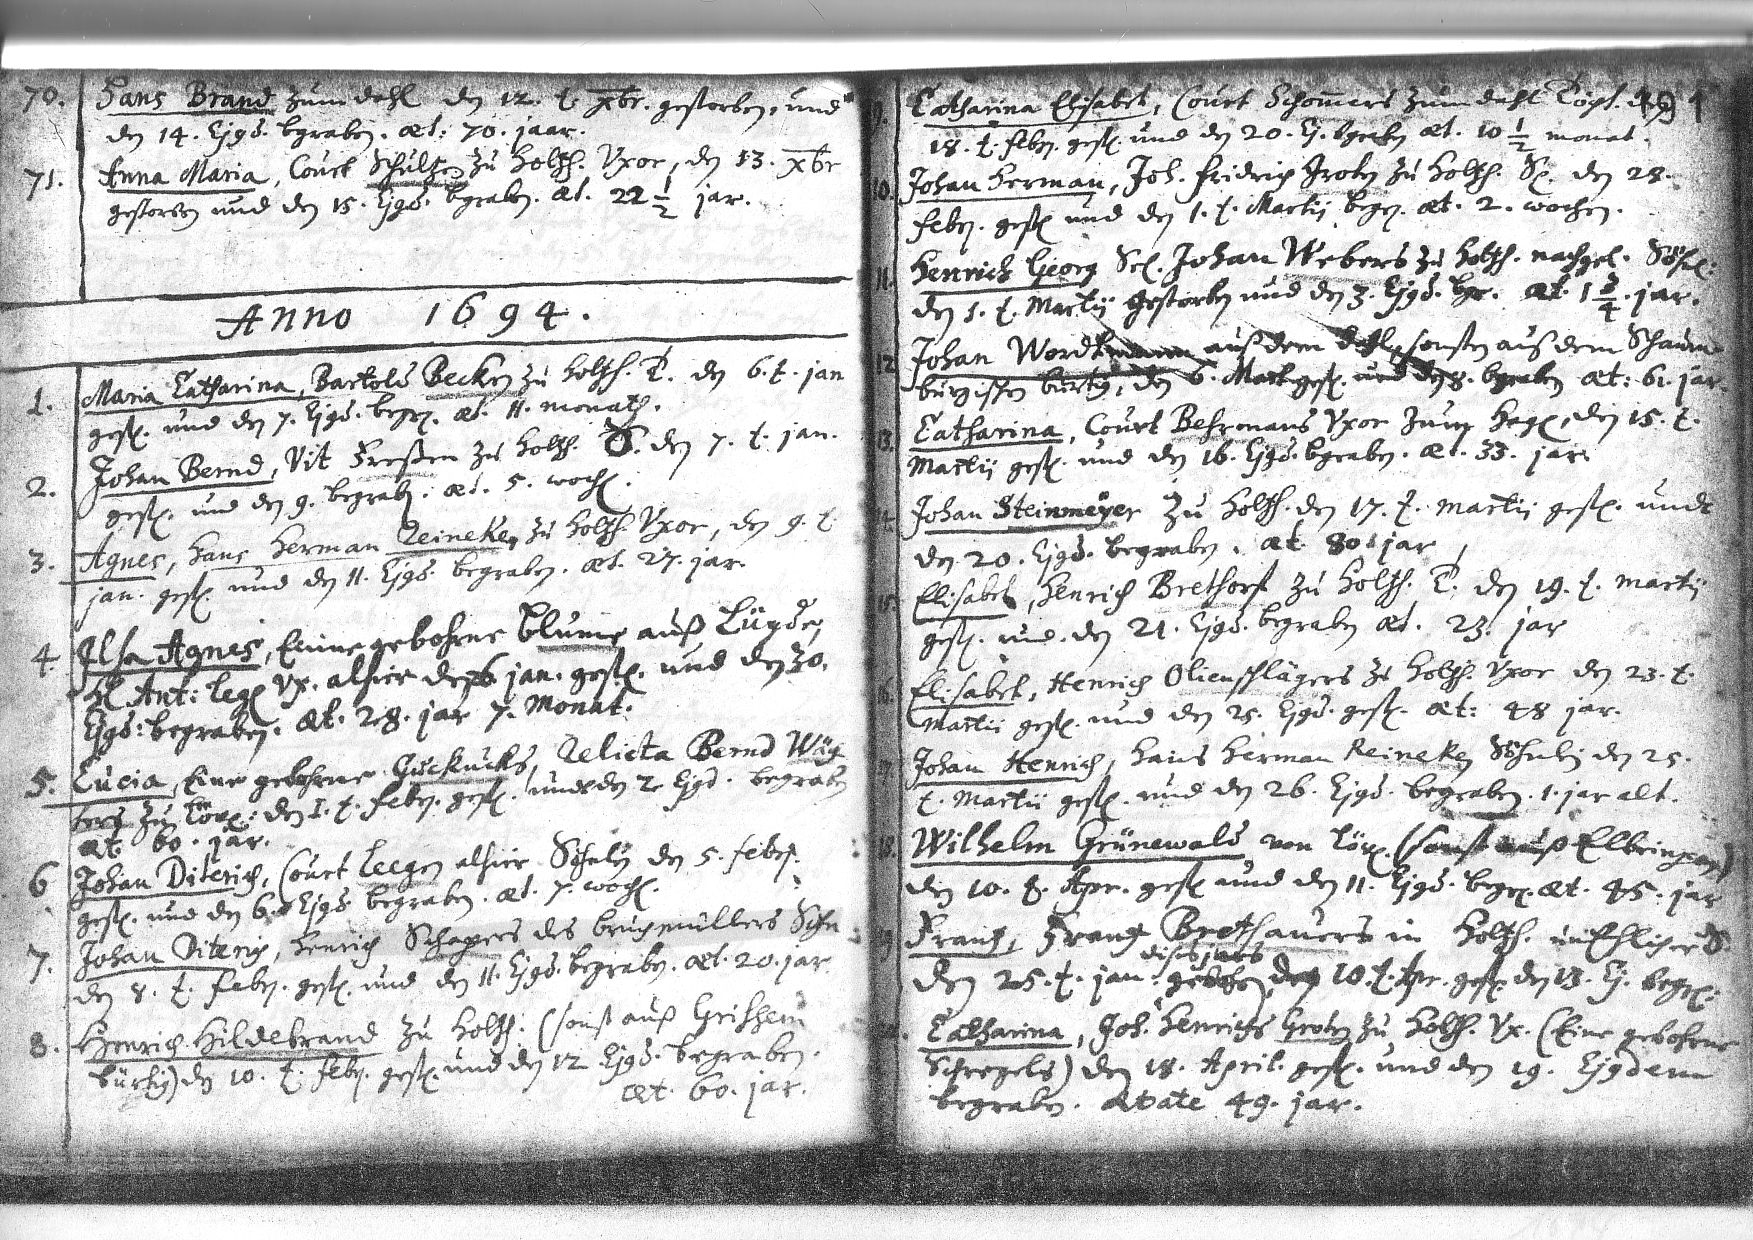 70. Hans Brand zum dahl den 12. t. xbr. gestorben, und
den 14. Ejgd. bgraben. æt: 70. jaar.
71. Anna Maria, Court Schultzen zu Holtzh. Vxor, den 13. xbr
gestorben und den 15. Ejgd. bgraben. æt. 22 1/2 jar.
Anno 1694.
1. Maria Catharina, Bartold Becken zu Holtzh. T. den 6. t. jan
gest. und den 7. Ejgd. begr. æt. 11. monath.
2. Johan Bernd, Vit Fresen zu Holtzh. S. den 7. t. jan.
gest. und den 9. begraben. æt. 5. woch.
3. Agnes, Hans Herman Reineken zu Holtzh. Vxor, den 9. t.
jan. gest. und den 11. Ejgd. begraben. æt. 27. jar.
4. Ilsa Agnes, Einne gebohrne Blume auß Lügde,
Ant: Vx. alhier den jan. gest. und den 30.
Ejgd: begraben. æt. 28. jar 7. Monat.
5. Lucia, Eine gebohrne Guckucks, Relicta Bernd Wäg
ters zu den 1. t. feb. gest. und den 2 Ejgd. begraben
æt. 60. jar.
6 Johan Diterich, Court Leegen alhier Söhnl. den 5. feb.
gest. und den 6. Ejgd. begraben. æt. 7. woch.
7. Johan Diterich, Henrich Schapers des bruchmüllers Sohn
den 8. t. feb. gest. und den 11. Ejgd. begraben. æt. 20. jar
8. Henrich Hildebrand zu Holtzh. (sonst auß Grishem
bürtig) den 10. t. feb. gest. und den 12 Ejgd. begraben.
æt. 60. jar.
191
9. Catharina Elisabet, Court Schomers zum dahl Töcht. den
18. t. feb. gest. und den 20. Ej. bgraben æt. 10 1/2 monat.
10. Johan Herman, Joh. Fridrich Groten zu Holtzh. S. den 28.
feb. gest. und den 1. t. Martij begr. æt. 2. wochen.
11. Henrich Georg Sel. Johan Webers zu Holtzh. nachgel. Söhnl:
den 1. t. Martij gestorben und den 3. Ejgd. bgr. æt. 1 3/4. jar.
12. Johan Wordtmann auß dem dahl, sonsten auß dem Schaum
burgischen bürtig, den 6. Mart gest. und den 8. bgraben æt: 61. jar.
13. Catharina, Court Behrmans Vxor zum Hag, den 15. t.
Martij gest. und den 16. Ejgd. bgraben. æt. 33. jar.
14. Johan Steinmeyer zu Holtzh. den 17. t. martij gest. undt
den 20. Ejgd. begraben. æt. 80. jar
15. Elisabet, Henrich Brethorst zu Holtzh. T. den 19. t. martij
gest. und den 21. Ejgd. begraben æt. 23. jar
16. Elisabet, Henrich Olienschlägers zu Holtzh. Vxor den 23. t.
Martii gest. und den 25. Ejgd. gest. æt: 48 jar.
17. Johan Henrich, Hans Herman Reineken Söhnlein den 25.
t. Martii gest. und den 26. Ejgd. begraben. 1. jar alt.
18. Wilhelm Grünewald von (sonst auß Elbrinxen)
den 10. t. Apr. gest. und den 11. Ejgd. begr. æt. 45. jar
19 Frantz, Frantz Brethauers in Holtzh. unEhlicher S.
dises jars
den 25. t. jan. gebohren, den 10. t. Apr. gest. den 13. Ej. begr.
20. Catharina, Joh. Henrichs Groten zu Holtzh. Vx. (Eine gebohrne
Schregels) den 18. April. gest. und den 19. Ejgdem
begraben. Ætate 49. jar.